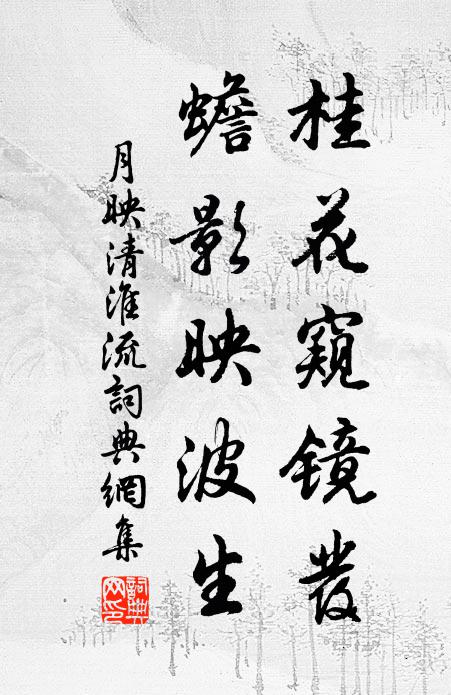 桂花窺鏡發
蟾影映波生
月映清淮流詞典網集